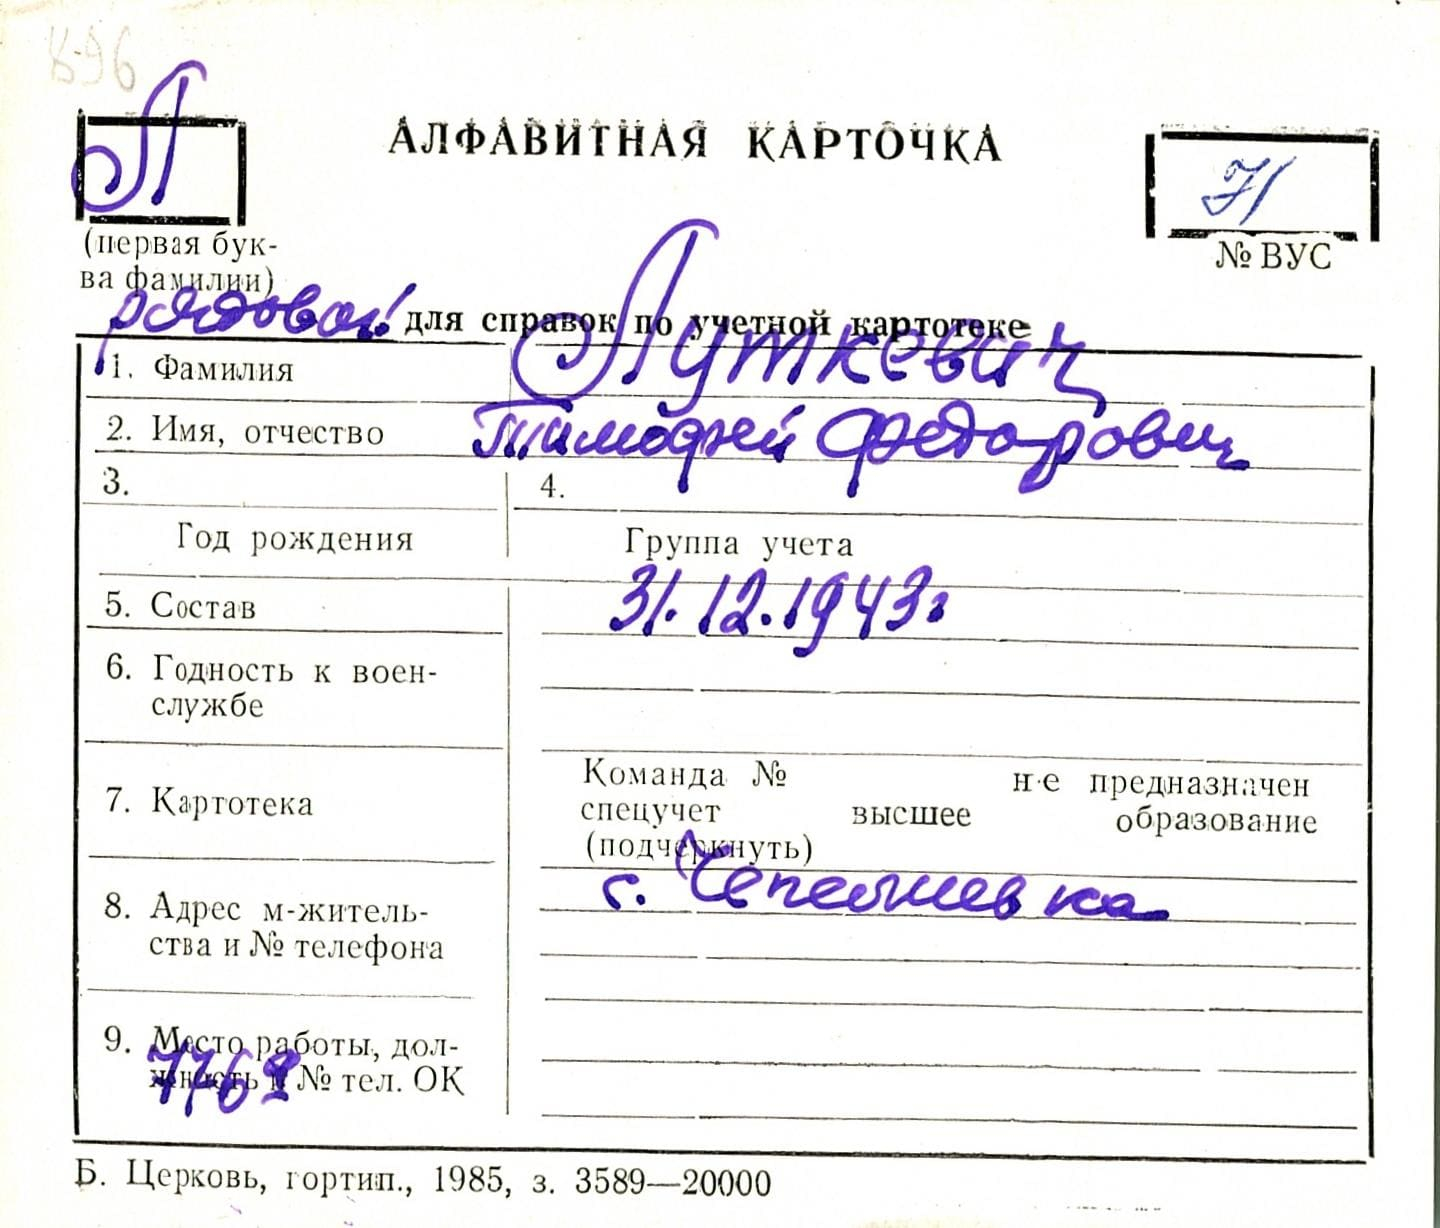 896
П
АЛФАВИТНАЯ КАРТОЧКА
(первая бук-
ва фамилии)
№ ВУС
рядовой для справок по учетной картотеке
1. Фамилия Путкевич
2. Имя, отчество Тимофей Федорович
3. 4.
Год рождения Группа учета
5. Состав 31.12.1943г
6. Годность к воен-
службе
7. Картотека
Команда № не предназначен
спецучет высшее образование
(подчеркнуть)
8. Адрес м-житель-
ства и № телефона
с. Чепелиевка
9. Место работы, дол-
жность и № тел. ОК
Б. Церковь, гортип., 1985, з. 3589—20000